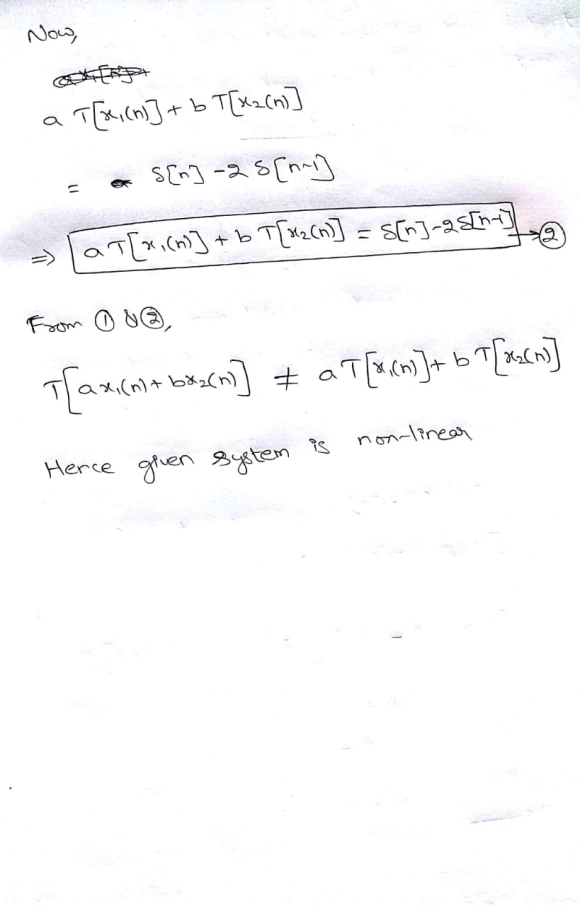 Now,
a T[x₁(n)] + b T[x₂(n)]
= δ[n] - 2 δ[n-1]
⇒ a T[x₁(n)] + b T[x₂(n)] = δ[n] - 2δ[n-1] → ②
From ① & ②,
T[a x₁(n) + b x₂(n)] ≠ a T[x₁(n)] + b T[x₂(n)]
Hence given system is non-linear